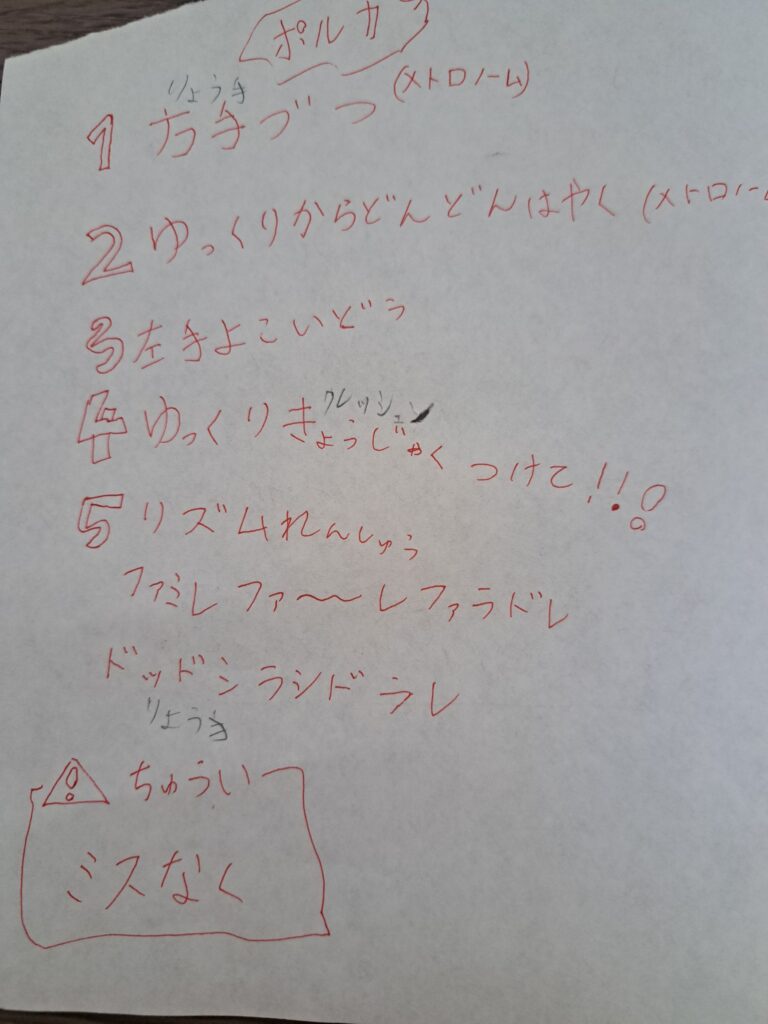 ポルカ
りょう手
1 方手づつ (メトロノーム)
2 ゆっくりからどんどんはやく (メトロノーム
3 左手よこいどう
クレッシェン
4 ゆっくりきょうじゃくつけて!!!
5 リズムれんしゅう
ファミレファ〜〜レファラドレ
ドッドシラシドラレ
りょう手
ちゅうい
ミスなく